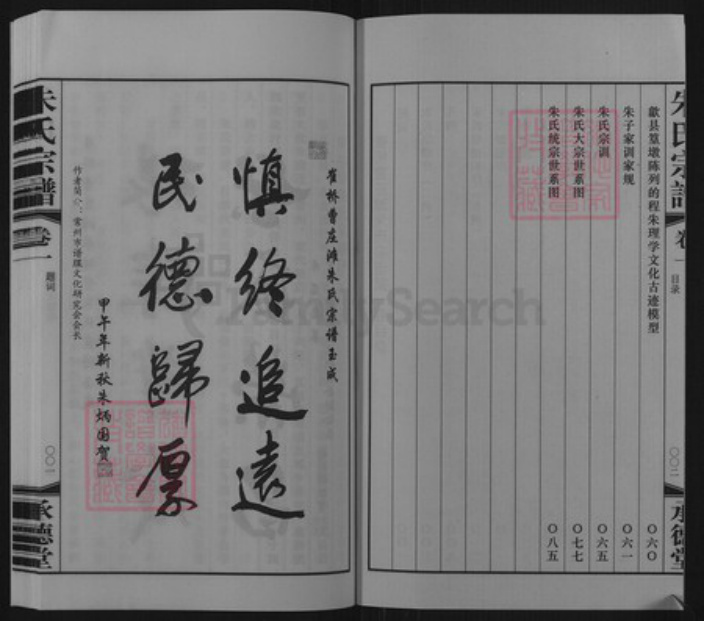 朱氏宗譜
卷一
目录
〇〇二
承德堂
歙县篁墩陈列的程朱理学文化古迹模型 〇六〇
朱子家训家规 〇六一
朱氏宗训 〇六五
朱氏大宗世系图 〇七七
朱氏统宗世系图 〇八五
崔桥曹庄滩朱氏宗谱玉成
慎终追遠
民德歸厚
甲午年新秋朱炳国贺
作者简介：常州市谱牒文化研究会会长
朱氏宗譜
卷一
题词
〇〇一
承德堂
FamilySearch